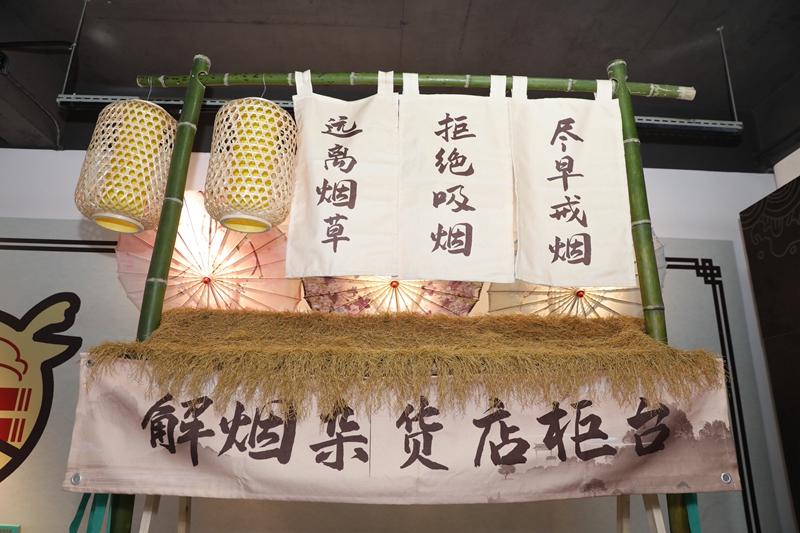 远离烟草
拒绝吸烟
尽早戒烟
解烟杂货店柜台